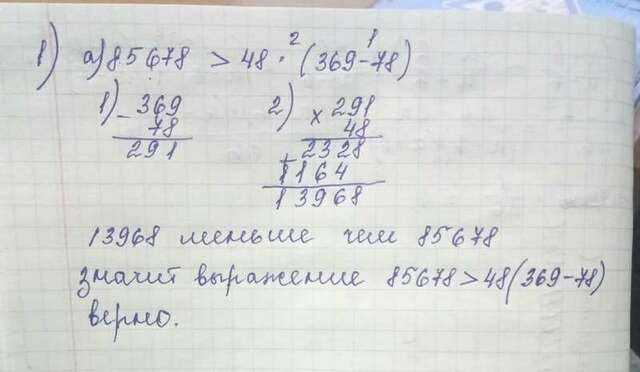 1) а) 85678 > 48 · (369-78)
2 1
1) - 369
78
291
2) x 291
48
2328
+ 1164
13968
13968 меньше чем 85678
значит выражение 85678 > 48(369-78)
верно.